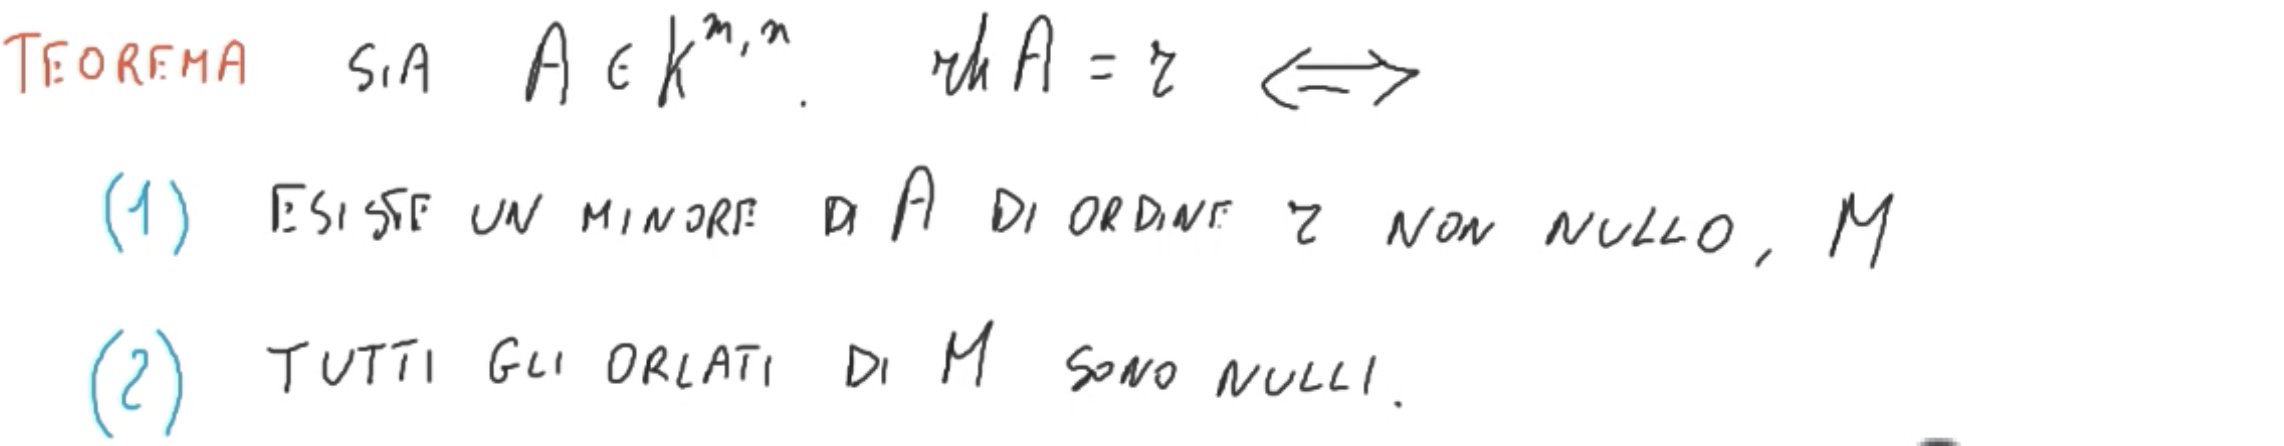 TEOREMA SIA A ∈ K^{m,n}. rk A = r ⟺
(1) ESISTE UN MINORE DI A DI ORDINE r NON NULLO, M
(2) TUTTI GLI ORLATI DI M SONO NULLI.